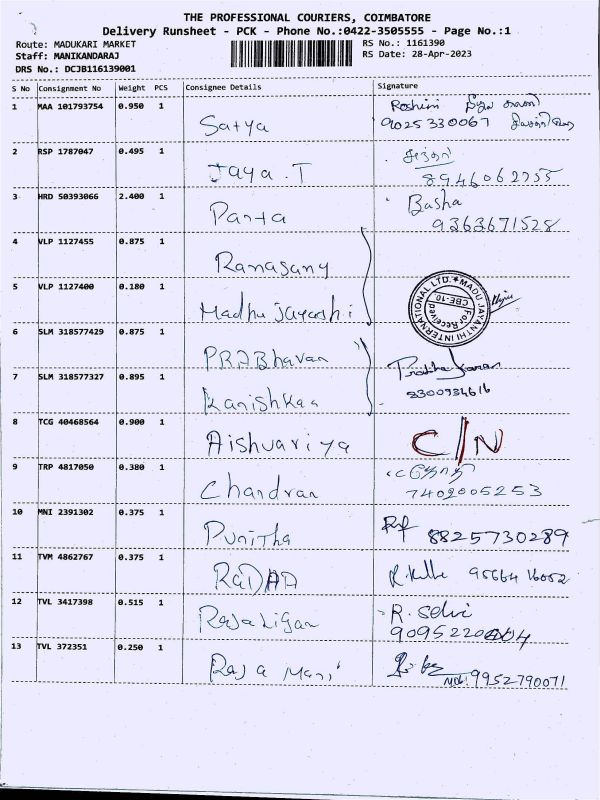 THE PROFESSIONAL COURIERS, COIMBATORE
Delivery Runsheet - PCK - Phone No.:0422-3505555 - Page No.:1
Route: MADUKARI MARKET RS No.: 1161390
Staff: MANIKANDARAJ RS Date: 28-Apr-2023
DRS No.: DCJB116139001
S No Consignment No Weight PCS Consignee Details Signature
1 MAA 101793754 0.950 1 Satya Roshini
9025330067
2 RSP 1787047 0.495 1 Jaya . T
8946062755
3 HRD 50393066 2.400 1 Basha
9363671528
4 VLP 1127455 0.875 1 Ranasany
5 VLP 1127400 0.180 1 Madhu jayashi
MADU JAYANTHI INTERNATIONAL LTD. ★
(For Receiver)
CBE-10
6 SLM 318577429 0.875 1 PRABhavan
7 SLM 318577327 0.895 1 Kanishkaa
Prabhakaran
8 TCG 40468564 0.900 1 Aishuariya C/N
9 TRP 4817050 0.380 1 Chandran
7402005253
10 MNI 2391302 0.375 1 Punitha 8825730289
11 TVM 4862767 0.375 1 RADAA
12 TVL 3417398 0.515 1 Rajaligan R. Selvi
13 TVL 372351 0.250 1 Raja Mani
Mob: 9952790071